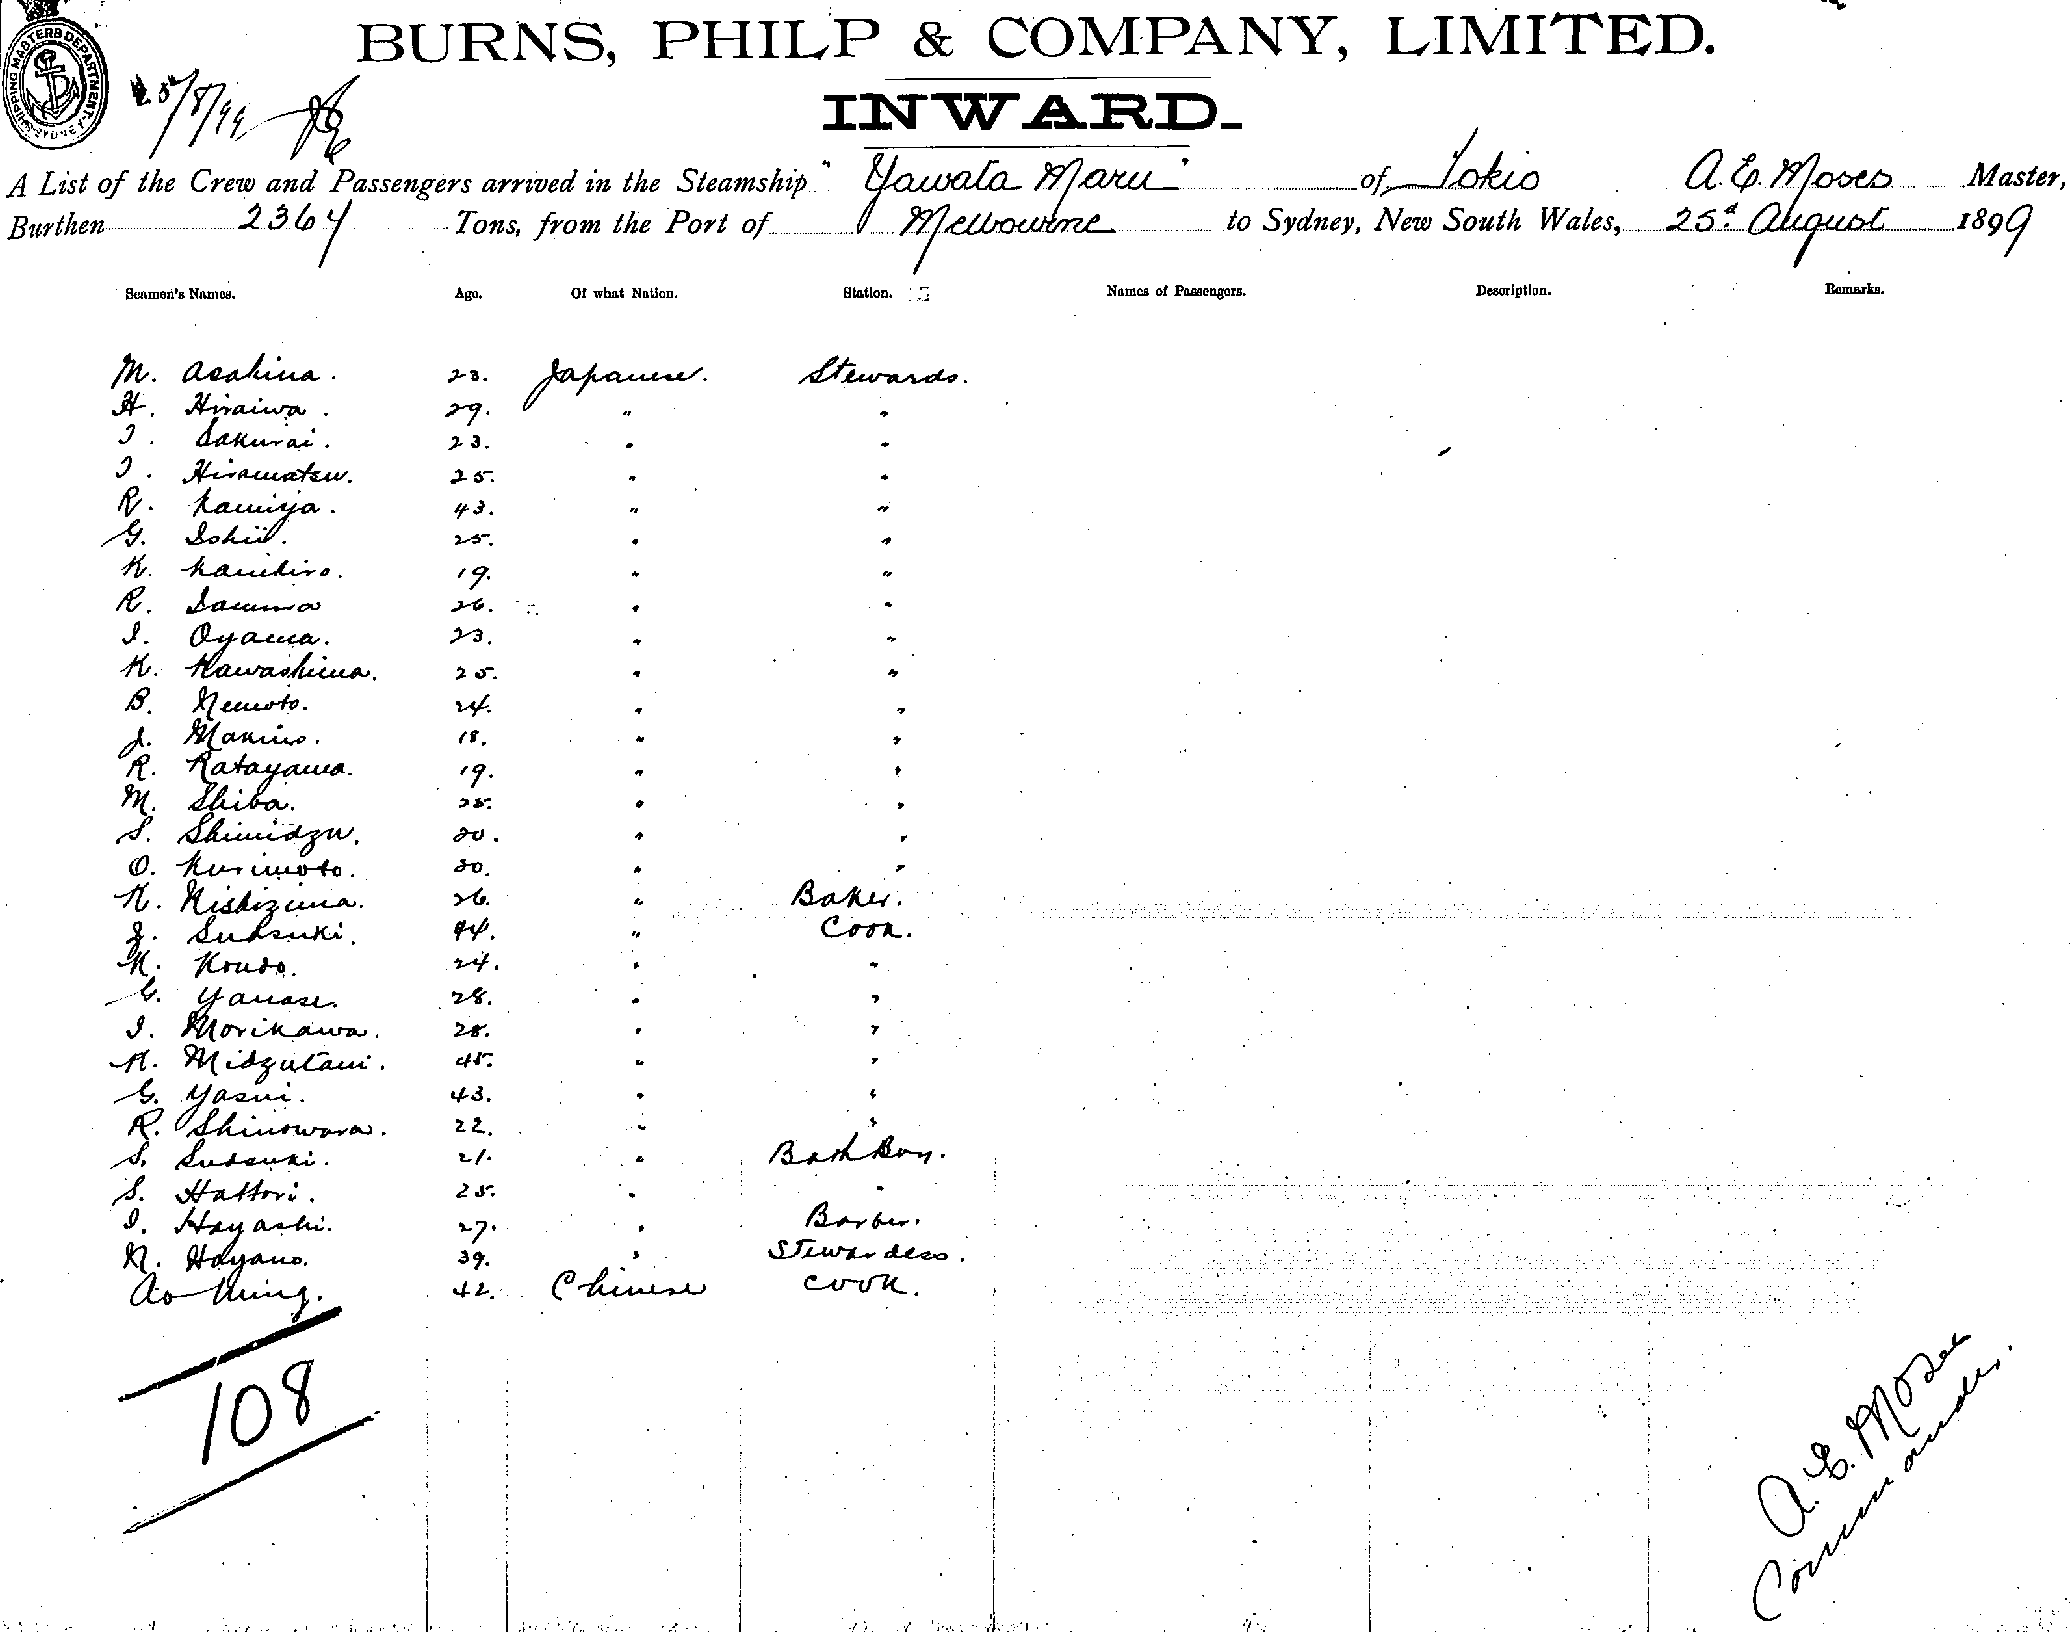 BURNS, PHILP & COMPANY, LIMITED.
SHIPPING MASTERS DEPARTMENT SYDNEY
25/8/99
INWARD.
A List of the Crew and Passengers arrived in the Steamship "Yawata Maru" of Tokio A. E. Moses Master,
Burthen 2364 Tons, from the Port of Melbourne to Sydney, New South Wales, 25th August 1899
Seamen's Names. Age. Of what Nation. Station. Names of Passengers. Description. Remarks.
M. Asahina. 23. Japanese. Stewards.
H. Hiraiwa. 29. " "
I. Sakurai. 23. " "
I. Hiramatsu. 25. " "
R. Kamiya. 43. " "
G. Ishii. 25. " "
K. 19. " "
R. 26. " "
I. Oyama. 23. " "
K. Kawashima. 25. " "
B. Nemoto. 24. " "
J. Makino. 18. " "
R. Katayama. 19. " "
M. Shiba. 25. " "
S. Shimidzu. 20. " "
O. Kurimoto. 20. " "
K. Nishizima. 26. " Baker.
J. Sudsuki. 44. " Cook.
K. Kondo. 24. " "
G. Yanase. 28. " "
I. Morikawa. 28. " "
K. Midzutani. 45. " "
G. Yasui. 43. " "
R. Shinowara. 22. " "
S. Sudsuki. 21. " Bath Boy.
S. Hattori. 25. " "
I. Hayashi. 27. " Barber.
N. Hayano. 39. " Stewardess.
Ao Ning. 42. Chinese Cook.
108
A. E. Moses
Commander.